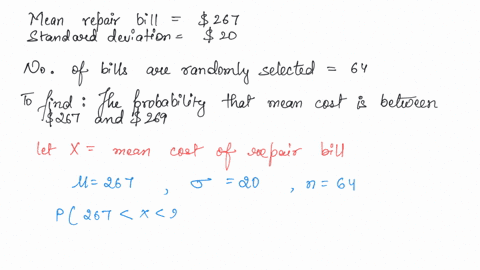 Mean repair bill = $267
Standard deviation = $20
No. of bills are randomly selected = 64
To find : The probability that mean cost is between
$267 and $269
let X = mean cost of repair bill
μ = 267 , σ = 20 , n = 64
P( 267 < x < 2